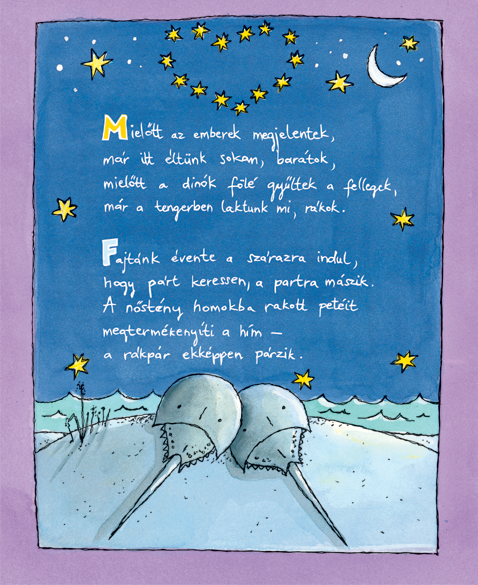 Mielőtt az emberek megjelentek,
már itt éltünk sokan, barátok,
mielőtt a dinók fölé gyűltek a fellegek,
már a tengerben laktunk mi, rákok.
Fajtánk évente a szárazra indul,
hogy párt keressen, a partra mászik.
A nőstény homokba rakott petéit
megtermékenyíti a hím —
a rákpár ekképpen párzik.